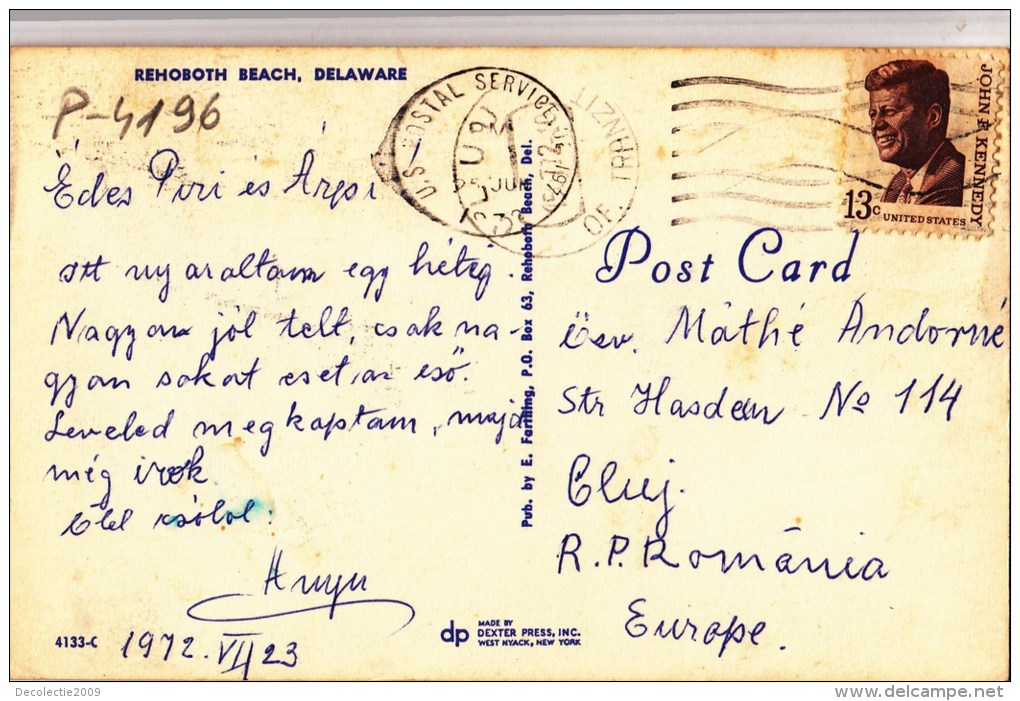 REHOBOTH BEACH, DELAWARE
P-4196
U.S. POSTAL SERVICE
JOHN F. KENNEDY
13c
UNITED STATES
Édes Piri és Árpi
itt nyaraltam egy hétig.
Nagyon jól telt, csak na-
gyon sokat eset az eső.
Leveled megkaptam, majd
még irok.
Ölel csólol:
Anyu
1972. VII 23
4133-C
Pub. by E. Farthing, P.O. Box 63, Rehoboth Beach, Del.
dp
MADE BY
DEXTER PRESS, INC.
WEST NYACK, NEW YORK
Post Card
Özv. Máthé Andorné
Str Hasdeu No 114
Cluj.
R.P. România
Europe.
Decolectie2009
www.delcampe.net